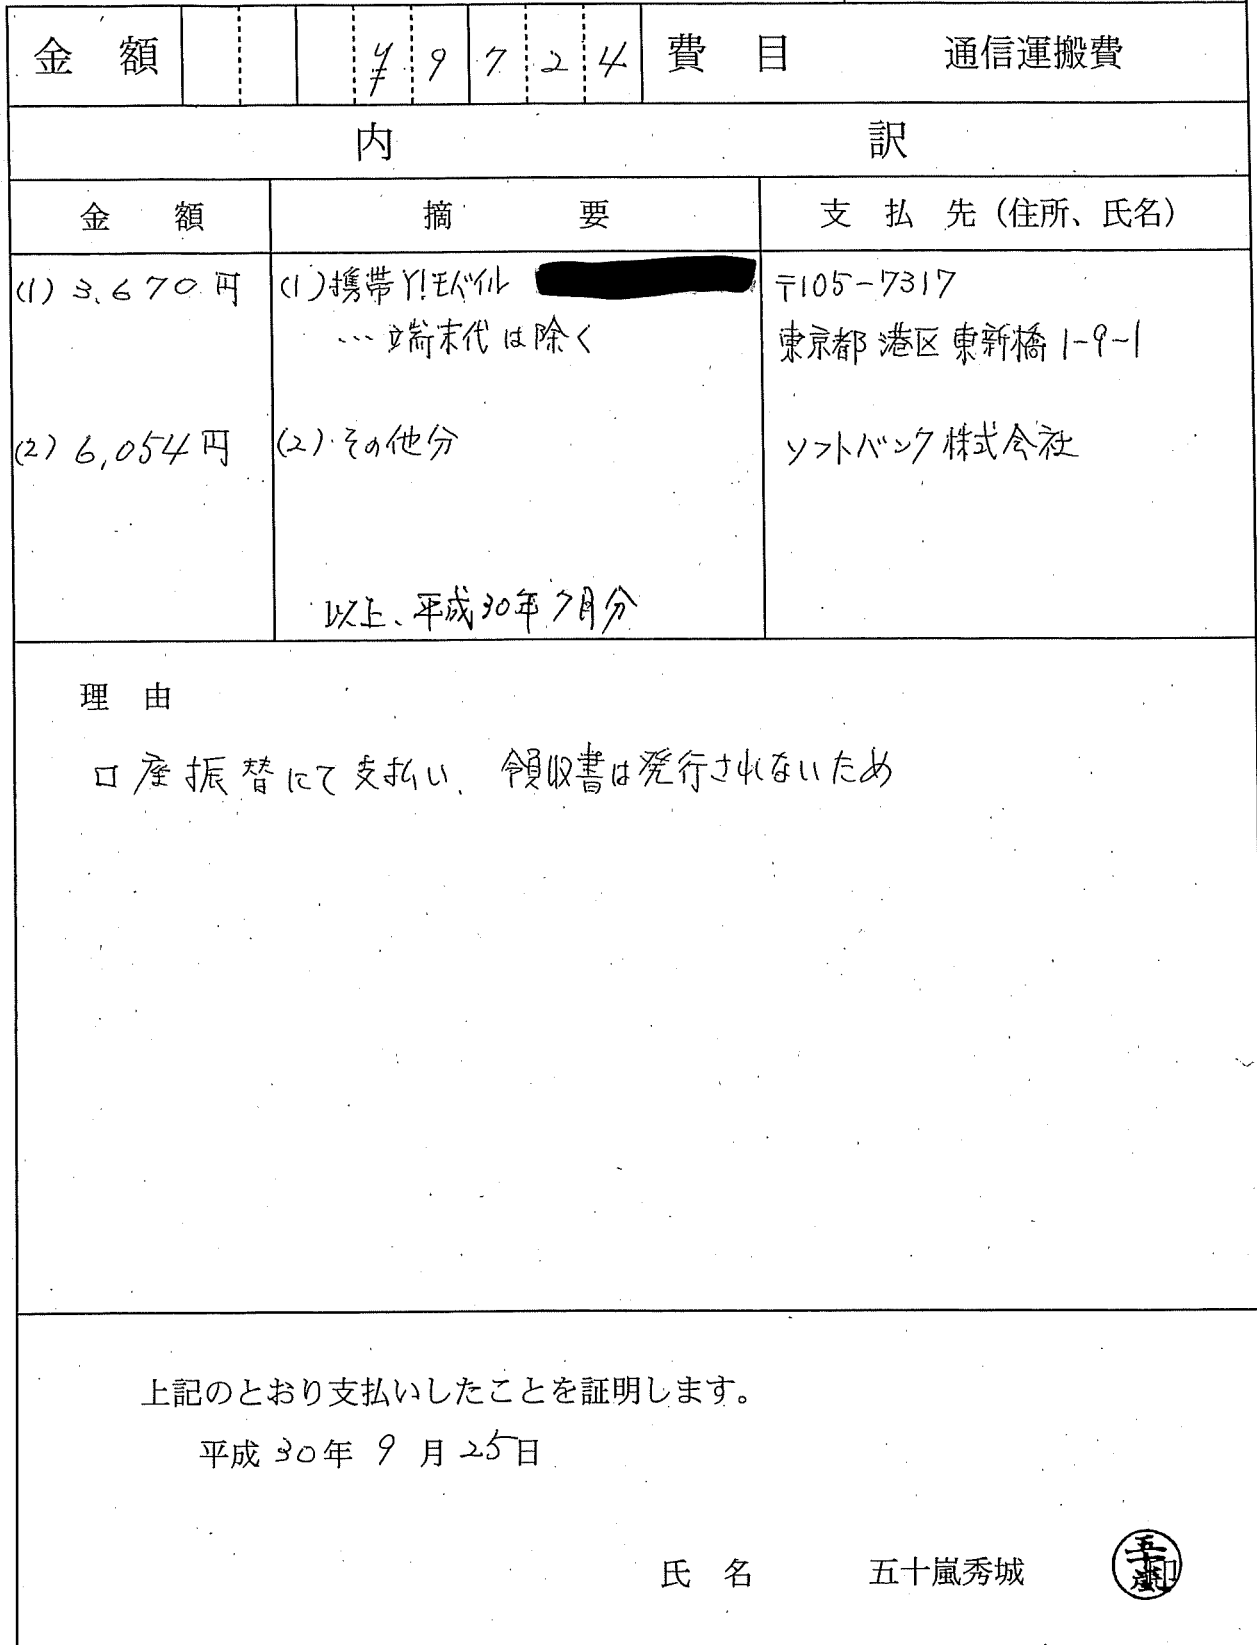 金 額 ¥9724 費 目 通信運搬費
内 訳
金 額 摘 要 支 払 先(住所、氏名)
(1) 3,670円 (1)携帯Y!モバイル 〒105-7317
…端末代は除く 東京都港区東新橋1-9-1
(2) 6,054円 (2)その他分 ソフトバンク株式会社
以上、平成30年7月分
理 由
口座振替にて支払い、領収書は発行されないため
上記のとおり支払いしたことを証明します。
平成30年9月25日
氏 名 五十嵐秀城 五十嵐 印